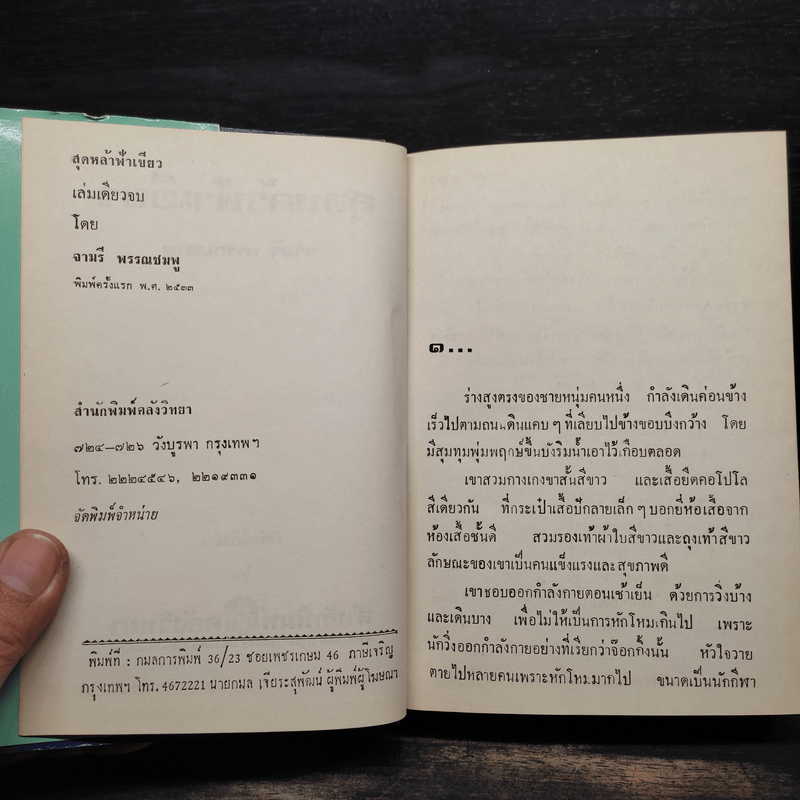 สุดหล้าฟ้าเขียว
เล่มเดียวจบ
โดย
จามรี พรรณชมพู
พิมพ์ครั้งแรก พ.ศ. ๒๕๓๓
สำนักพิมพ์คลังวิทยา
๗๒๔-๗๒๖ วังบูรพา กรุงเทพฯ
โทร. ๒๒๒๔๕๔๖, ๒๒๑๙๓๓๑
จัดพิมพ์จำหน่าย
พิมพ์ที่ : กมลการพิมพ์ 36/23 ซอยเพชรเกษม 46 ภาษีเจริญ
กรุงเทพฯ โทร. 4672221 นายกมล เจียระสุพัฒน์ ผู้พิมพ์ผู้โฆษณา
๑...
ร่างสูงตรงของชายหนุ่มคนหนึ่ง กำลังเดินค่อนข้าง
เร็วไปตามถนนดินแคบๆ ที่เลียบไปข้างขอบบึงกว้าง โดย
มีสุมทุมพุ่มพฤกษ์ขึ้นบังริมน้ำเอาไว้เกือบตลอด
เขาสวมกางเกงขาสั้นสีขาว และเสื้อยืดคอโปโล
สีเดียวกัน ที่กระเป๋าเสื้อปักลายเล็กๆ บอกยี่ห้อเสื้อจาก
ห้องเสื้อชั้นดี สวมรองเท้าผ้าใบสีขาวและถุงเท้าสีขาว
ลักษณะของเขาเป็นคนแข็งแรงและสุขภาพดี
เขาชอบออกกำลังกายตอนเช้าเย็น ด้วยการวิ่งบ้าง
และเดินบาง เพื่อไม่ให้เป็นการหักโหมเกินไป เพราะ
นักวิ่งออกกำลังกายอย่างที่เรียกว่าจ๊อกกิ้งนั้น หัวใจวาย
ตายไปหลายคนเพราะหักโหมมากไป ขนาดเป็นนักกีฬา